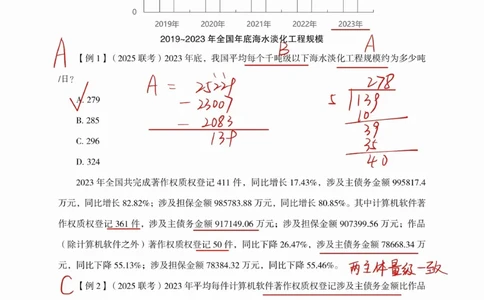 0
2019年 2020年 2021年 2022年 2023年
2019~2023 年全国年底海水淡化工程规模
A B A
【例 1】(2025 联考) 2023 年底，我国平均每个千吨级以下海水淡化工程规模约为多少吨
/日?
A = 25229
- 23007
- 2083
139
278
5 139
10
39
35
40
A. 279
B. 285
C. 296
D. 324
2023 年全国共完成著作权质权登记 411 件，同比增长 17.43%，涉及主债务金额 995817.4
万元，同比增长 82.82%；涉及担保金额 985783.88 万元，同比增长 80.85%。其中计算机软件著
作权质权登记 361 件，涉及主债务金额 917149.06 万元；涉及担保金额 907399.56 万元；作品
（除计算机软件之外）著作权质权登记 50 件，同比下降 26.47%，涉及主债务金额 78668.34 万
元，同比下降 55.13%；涉及担保金额 78384.32 万元，同比下降 55.46%。
两主体量级一致
C
【例 2】(2025 联考) 2023 年平均每件计算机软件著作权质权登记涉及主债务金额比作品